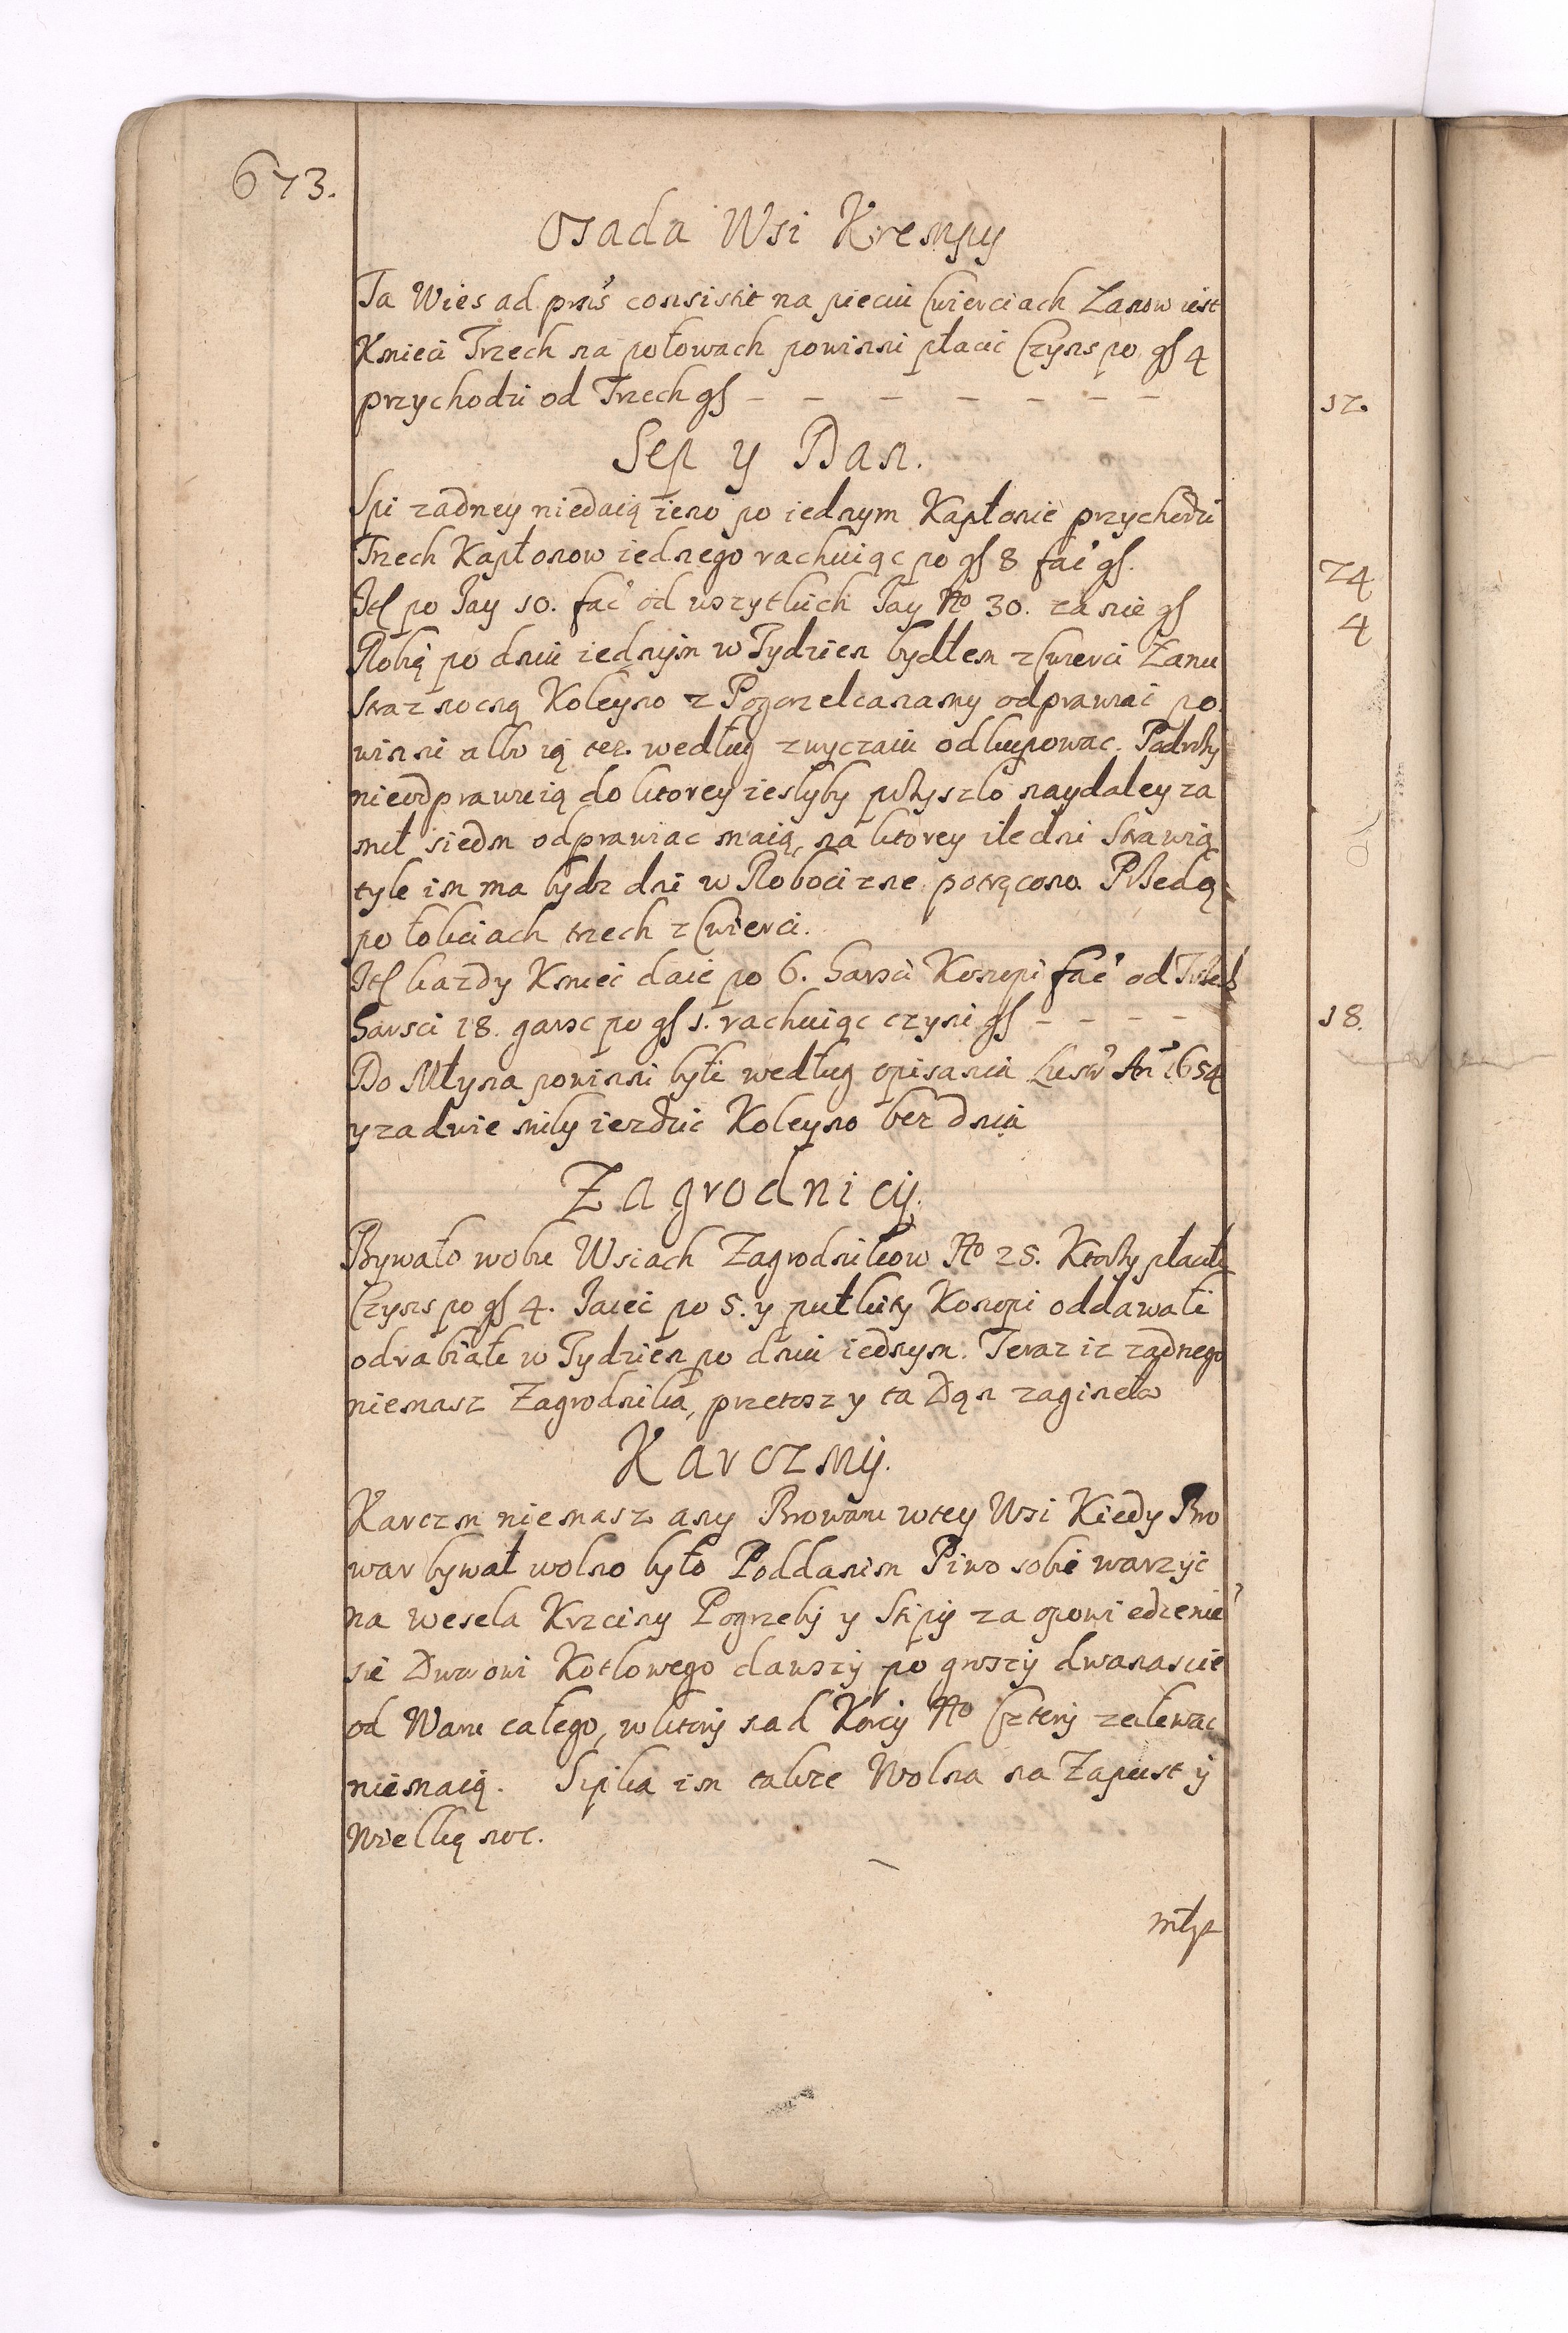 673.
Osada Wsi Krempy
Ta Wies ad prns consistit na pieciu Cwierciach Łanow iest
Kmieci Trzech na połowach powinni płacic Czyns po gſ 4
przychodzi od Trzech gſ - - - - - - - 12.
Sep y Dan.
Spi zadney niedaią ieno po iednym Kapłonie przychodzi
Trzech Kapłonow iednego rachuiąc po gſ 8 fac gſ. 24
Itſ po Jay 10. fac od wszytkich Jay No 30. za nie gſ 4
Robią po dniu iednym w Tydzien bydłem z Cwierci Łanu
straz nocną Koleyno z Pogorzelcanamy odprawiac po
winni albo ią tez według zwyczaiu odkupowac. Podroży
nieodprawuią do ktorey iesłyby przyszło naydaley za
mil siedm odprawiac maią, na ktorey ile dni strawią
tyle im ma bydz dni w Robociznie potrącono. Przedą
po łokciach trzech z Cwierci.
Itſ kazdy Kmiec daie po 6. Garsci Konopi fac od Trzech
Garsci 18. garsc po gſ 1. rachuiąc czyni gſ - - - - 18.
Do Młyna powinni byli według opisania Lusw An 1654
y za dwie mily iezdzic Koleyno bez dnia
Zagrodnicy.
Bywało w obu Wsiach Zagrodnikow No 25. Ktorzy płacili
Czyns po gſ 4. Jaiec po 5. y puł kity Konopi oddawali
odrabiali w Tydzien po dniu iednym. Teraz iz zadnego
niemasz Zagrodnika, przetosz y ta Dąn zagineła
Karczmy.
Karczm niemasz any Browaru w tey Wsi Kiedy Bro
war bywał wolno było Poddanim Piwo sobie warzyc
na wesela Krzciny Pogrzeby y Stipy za opowiedzenie
sie Dworowi Kotlowego dawszy po groszy dwanascie
od Waru całego, w ktory nad Korcy No Cztery zalewac
niemaią. Sipka im takze Wolna na Zapust y
Wielką noc.
młyn